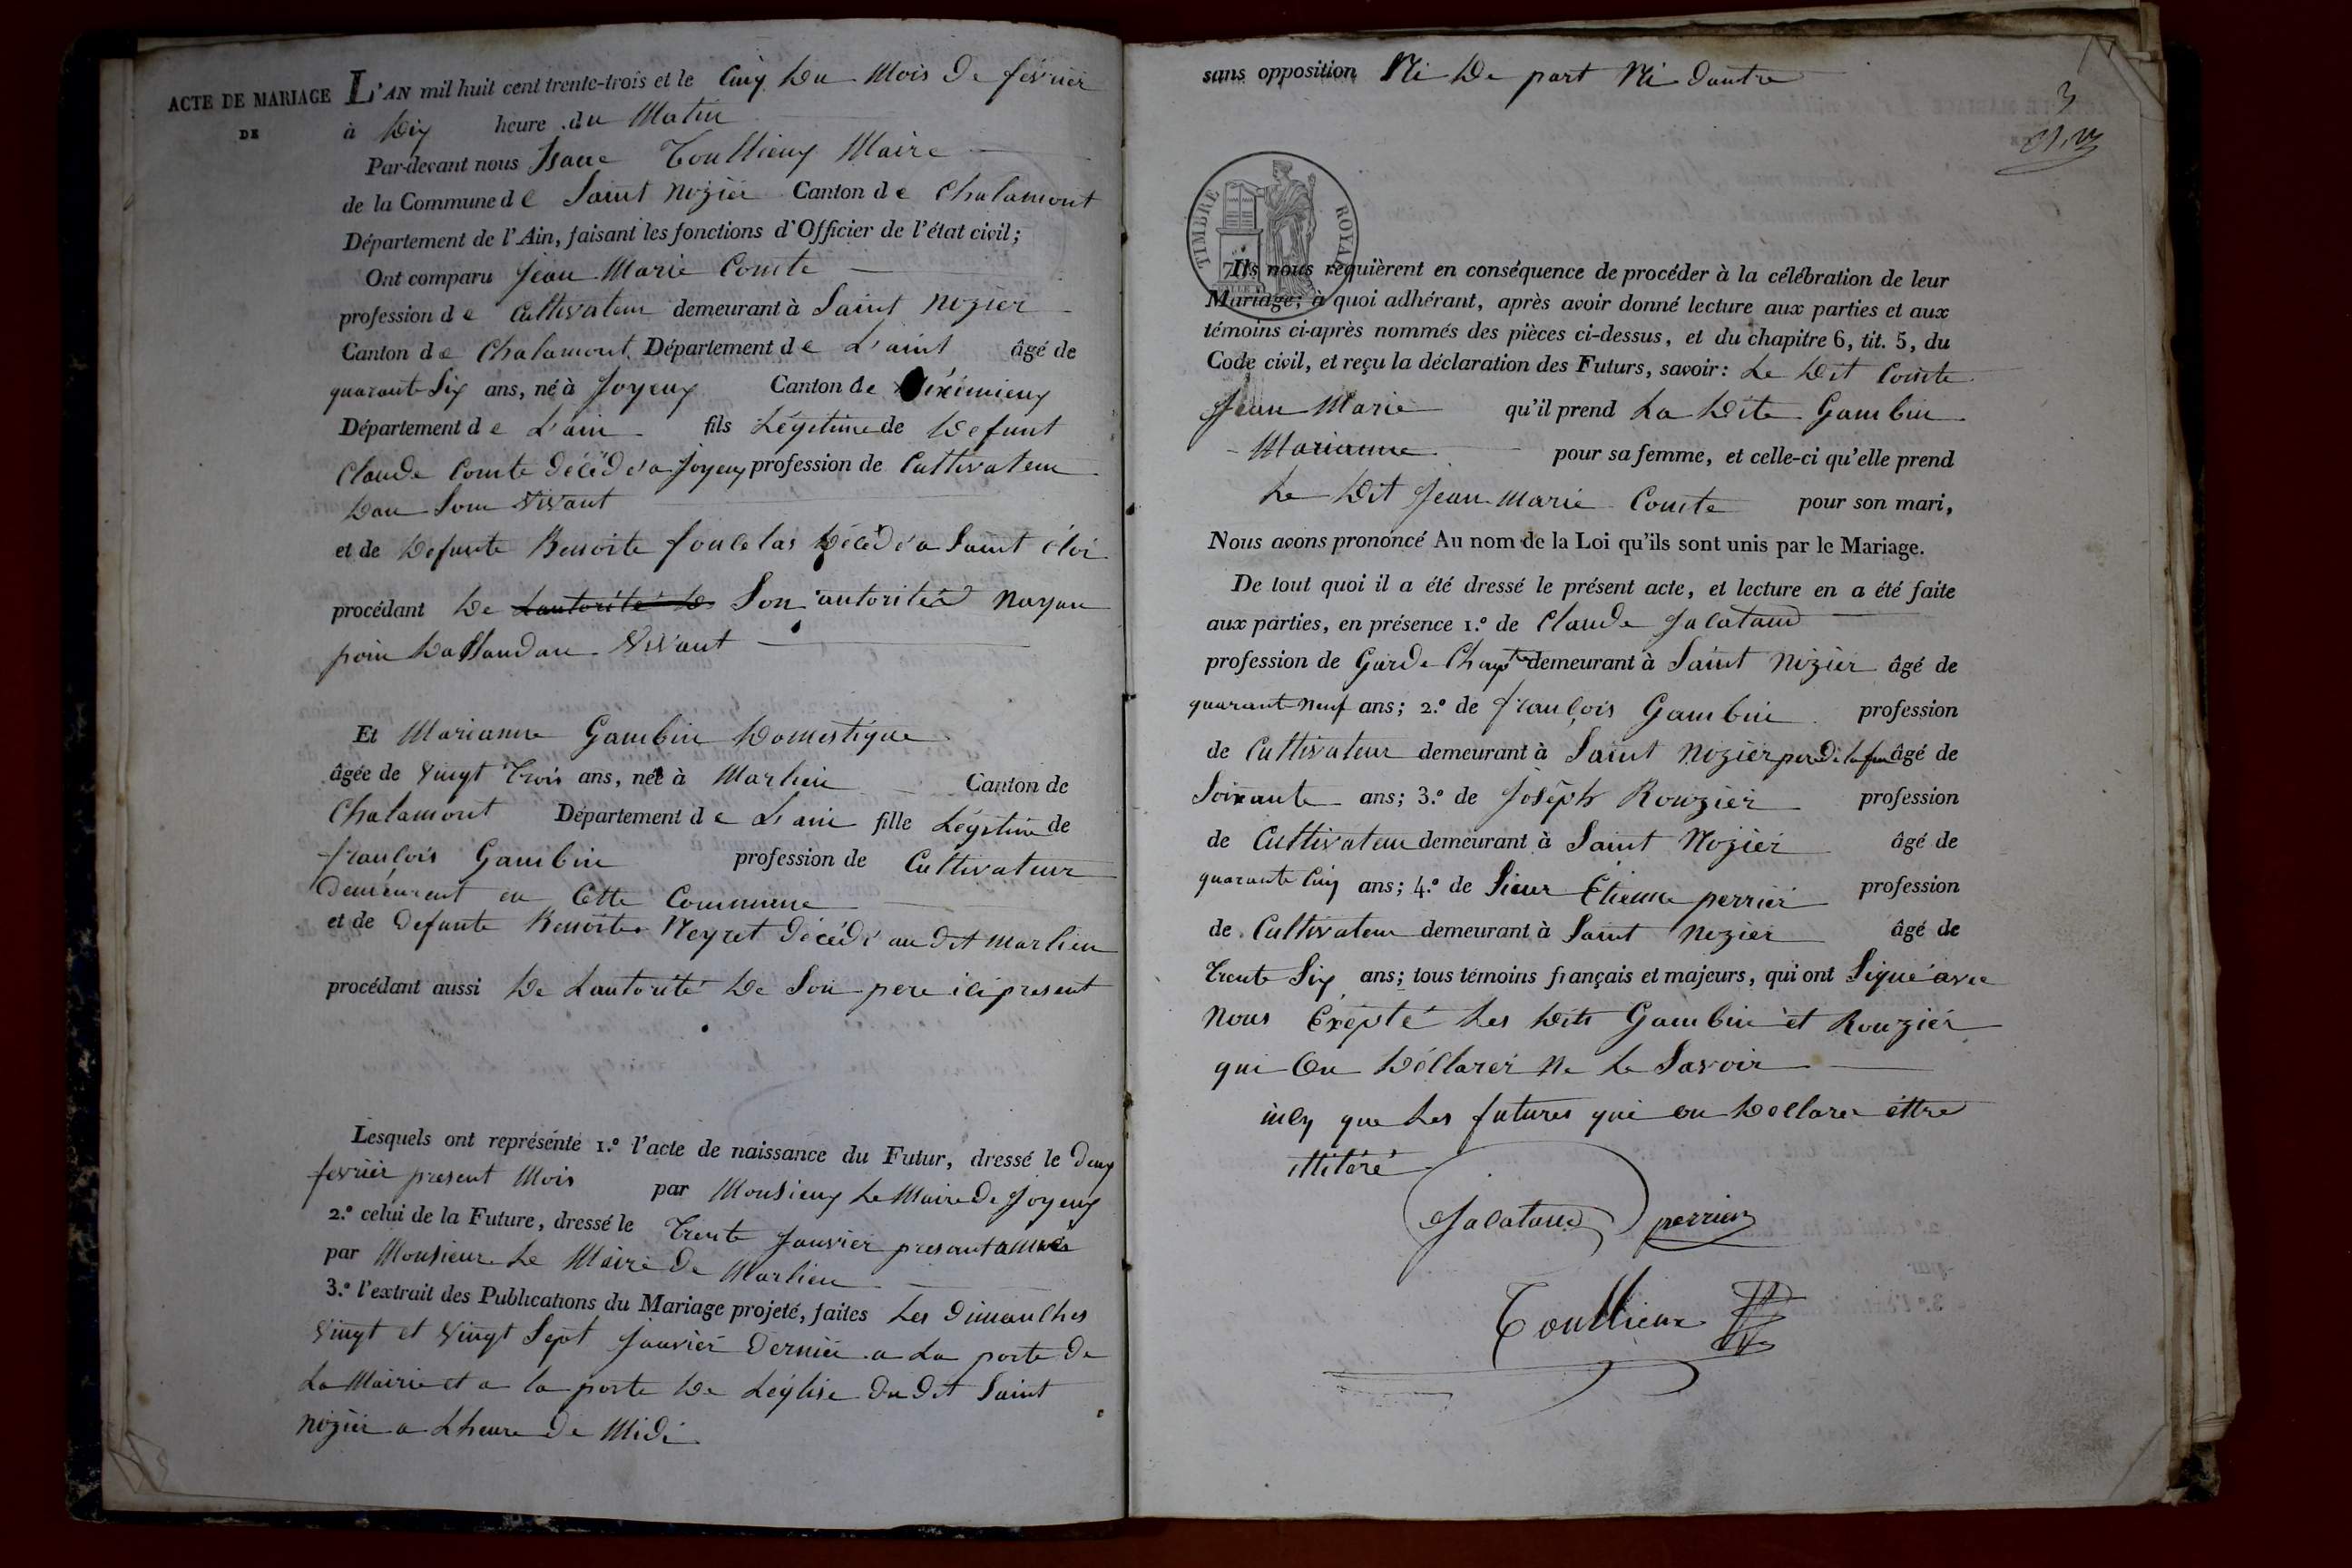 ACTE DE MARIAGE
DE
L'AN mil huit cent trente-trois et le Cinq Du Mois De février
à Dix heure du Matin
Par-devant nous Isaac Toullieux Maire
de la Commune de Saint Nizier Canton de Chalamont
Département de l'Ain, faisant les fonctions d'Officier de l'état civil;
Ont comparu Jean Marie Comte
profession de Cultivateur demeurant à Saint Nizier
Canton de Chalamont Département de L'aint âgé de
quarante Six ans, né à Joyeux Canton de Meximieux
Département de L'ain fils Légitime de Defunt
Claude Comte décédé a Joyeux profession de Cultivateur
Dau Som Vivant
et de Defunte Benoite Décédé a Saint éloi
procédant De Lautorité D Son autorité Nayan
poin Vivant
Et Marianne Gambin Domestique
âgée de Vingt Trois ans, née à Marlieu Canton de
Chalamont Département de L'ain fille Légitime de
françois Gambin profession de Cultivateur
Demeurent en Cette Commune
et de Defunte Benoite Neyret Décédé au Dit Marlieu
procédant aussi De Lautorité De Son pere ici present
Lesquels ont représenté 1.º l'acte de naissance du Futur, dressé le Deux
fevrier present Mois par Monsieux Le Maire De Joyeux
2.º celui de la Future, dressé le Trente Janvier presant année
par Monsieur Le Maire De Marlieu
3.º l'extrait des Publications du Mariage projeté, faites Les Dimanches
Vingt et Vingt Sept Janvier Dernier a La porte De
La Mairie et a la porte De Léglise Du Dit Saint
Nizier a Lheure De Midi
sans opposition Ni De part Ni Dautre
3
TIMBRE ROYAL
Ils nous requièrent en conséquence de procéder à la célébration de leur
Mariage; à quoi adhérant, après avoir donné lecture aux parties et aux
témoins ci-après nommés des pièces ci-dessus, et du chapitre 6, tit. 5, du
Code civil, et reçu la déclaration des Futurs, savoir: Le Dit Comte
Jean Marie qu'il prend La Dite Gambin
Marianne pour sa femme, et celle-ci qu'elle prend
Le Dit Jean Marie Comte pour son mari,
Nous avons prononcé Au nom de la Loi qu'ils sont unis par le Mariage.
De tout quoi il a été dressé le présent acte, et lecture en a été faite
aux parties, en présence 1.º de Claude Jalataud
profession de Garde Champ demeurant à Saint Nizier âgé de
quarant Neuf ans; 2.º de françois Gambin profession
de Cultivateur demeurant à Saint Nizier pere De la fu âgé de
Soixante ans; 3.º de Joséph Rouzier profession
de Cultivateur demeurant à Saint Nizier âgé de
quarante Cinq ans; 4.º de Sieur Étienne perrier profession
de Cultivateur demeurant à Saint Nizier âgé de
Trente Six ans; tous témoins français et majeurs, qui ont Signé avec
Nous Exepté Les Dits Gambin et Rouzier
qui On Déllarer Ne Le Savoir
incy que Les futures qui on Dellarer éttre
ittitéré
Jalataud perrier
Toullieux